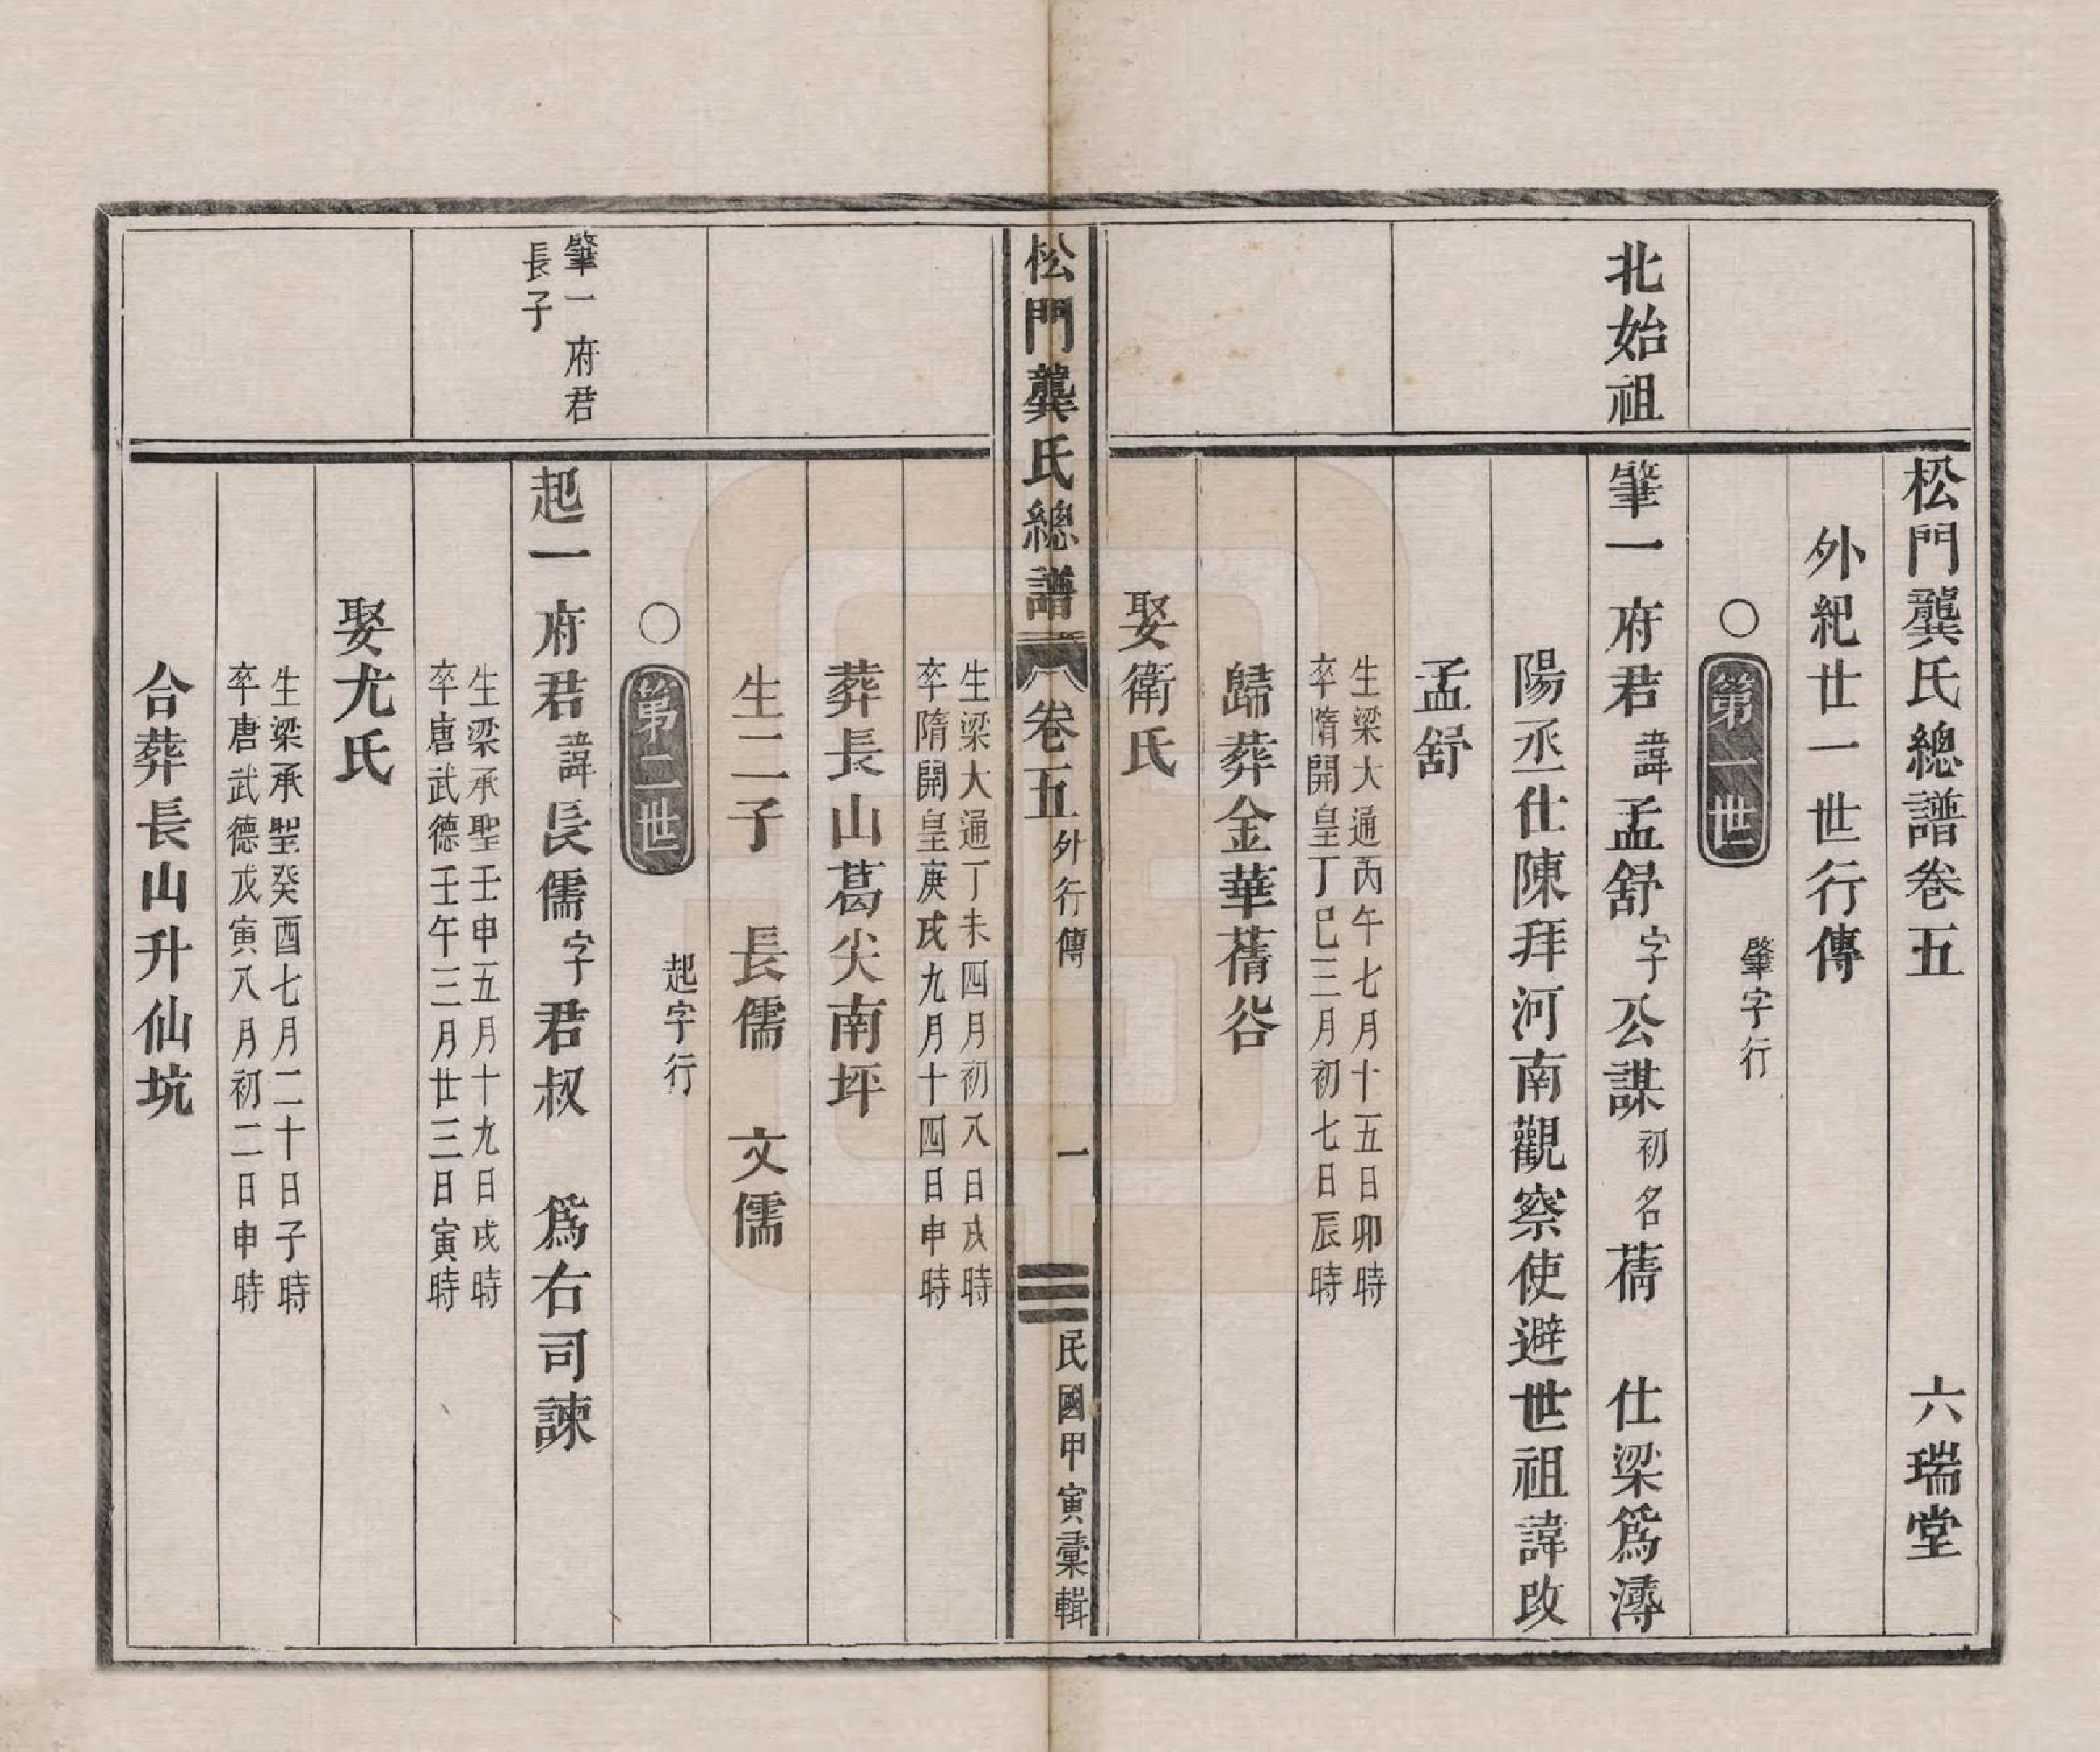 松門龔氏總譜卷五 六瑞堂
外紀廿一世行傳
○第一世 肇字行
北始祖
肇一府君諱孟舒字公謀初名蒨 仕梁爲潯
陽丞仕陳拜河南觀察使避世祖諱改
孟舒
生梁大通丙午七月十五日卯時
卒隋開皇丁巳三月初七日辰時
歸葬金華蒨谷
娶衛氏
松門龔氏總譜 卷五 外行傳 一 民國甲寅彙輯
生梁大通丁未四月初八日戌時
卒隋開皇庚戌九月十四日申時
葬長山葛尖南坪
生二子 長儒 文儒
○第二世 起字行
肇一府君
長子
起一府君諱長儒字君叔 爲右司諫
生梁承聖壬申五月十九日戌時
卒唐武德壬午三月廿三日寅時
娶尤氏
生梁承聖癸酉七月二十日子時
卒唐武德戊寅八月初二日申時
合葬長山升仙坑